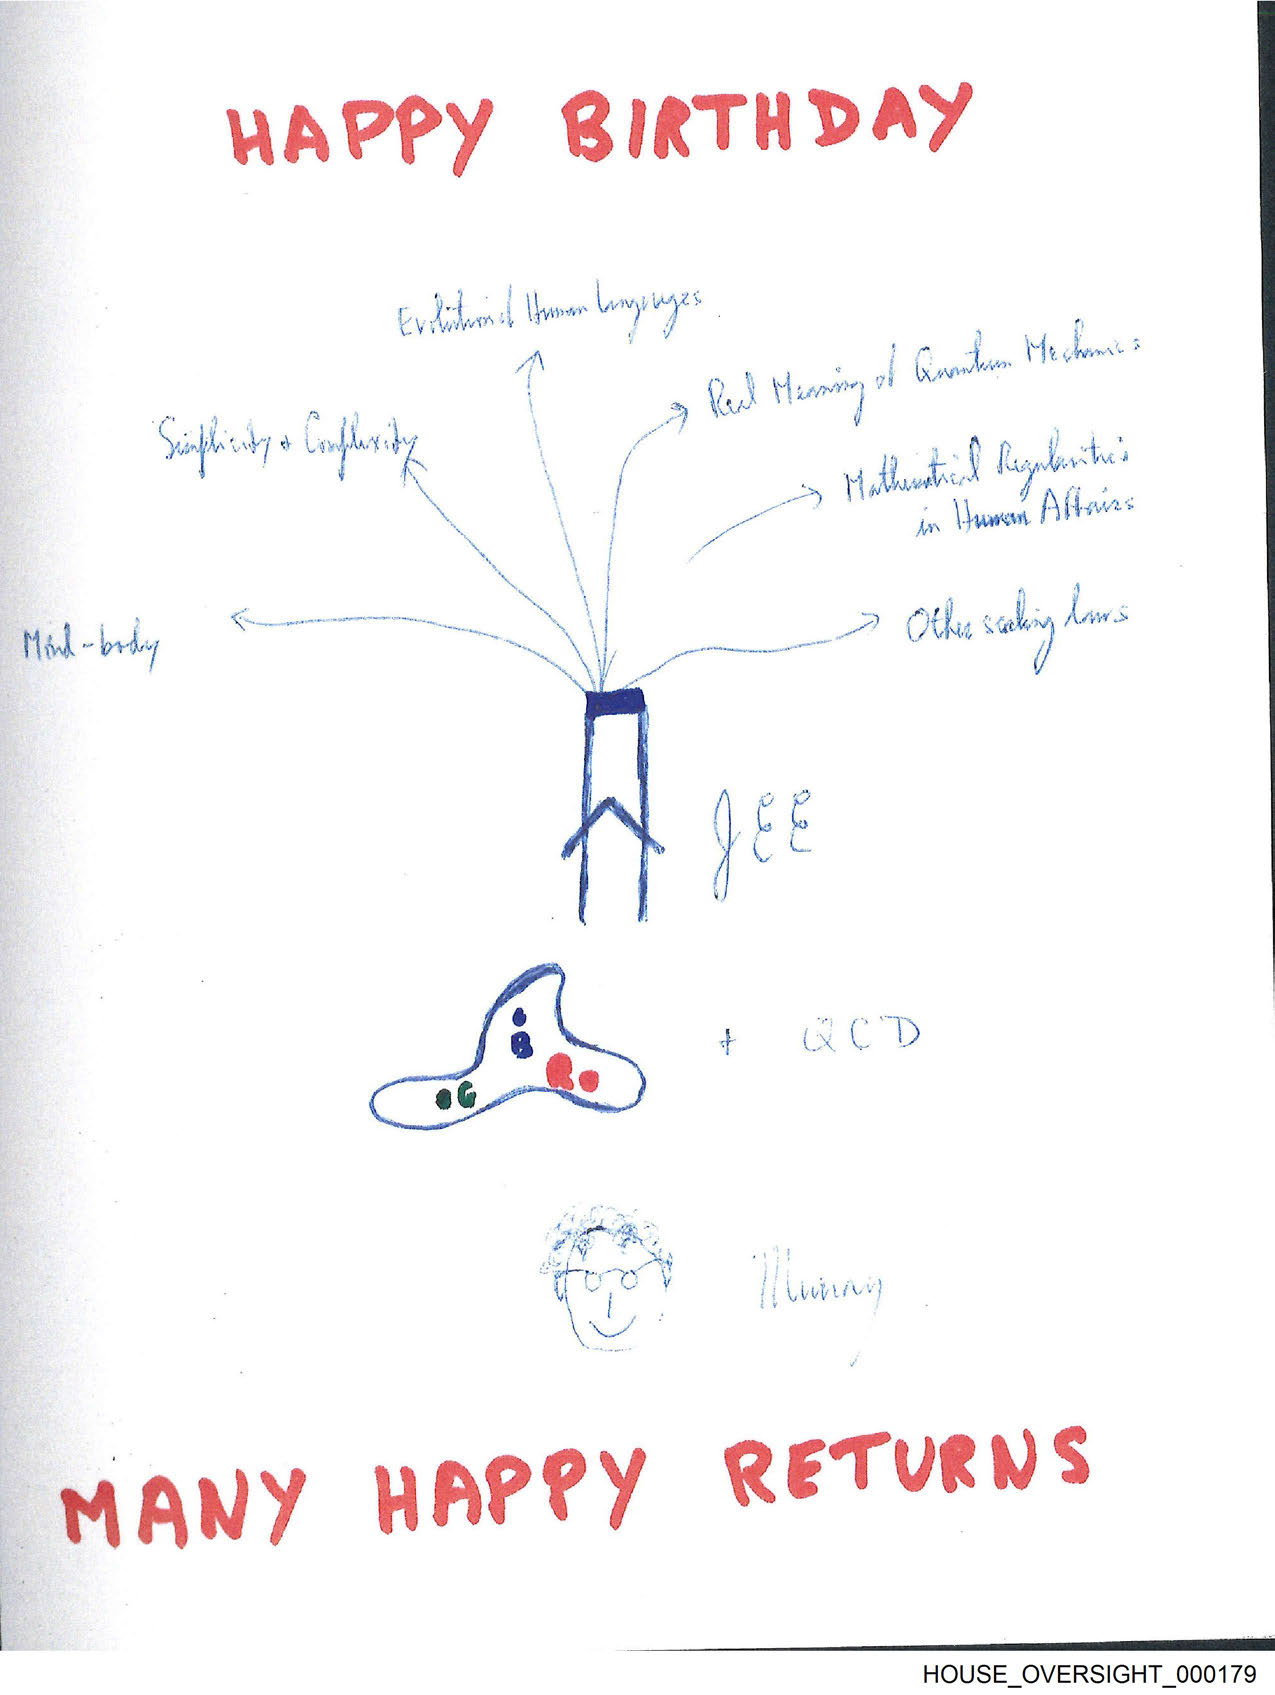 HAPPY BIRTHDAY
Evolution of Human Languages
Real Meaning of Quantum Mechanics
Simplicity & Complexity
Mathematical Regularities
in Human Affairs
Other scaling laws
Mind-body
JEE
B
+ QCD
R
G
Murray
MANY HAPPY RETURNS
HOUSE_OVERSIGHT_000179